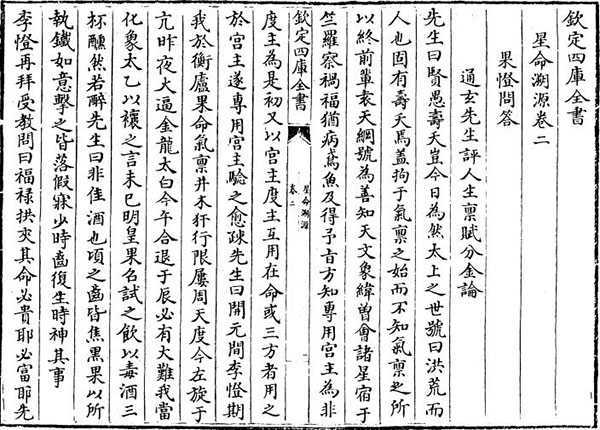 欽定四庫全書
星命溯源卷二
果憕問答
通玄先生評人生稟賦分金論
先生曰賢愚壽夭豈今日為然太上之世號曰洪荒而
人也固有壽夭焉蓋拘于氣稟之始而不知氣稟之所
以終前輩袁天綱號為善知天文象緯曽會諸星宿于
竺羅察禍福猶病鳶魚及得予旨方知專用宫主為非
欽定四庫全書
星命溯源
卷二
度主為是初又以宫主度主互用在命或三方者用之
於宫主遂專用宫主驗之愈疎先生曰開元間李憕期
我於衡廬果命氣稟井木犴行限屢周天度今左旋于
亢昨夜大逼金龍太白今午合退于辰必有大難我當
化象太乙以禳之言未已明皇果召試之飲以毒酒三
杯醺然若醉先生曰非佳酒也頃之齒皆焦黑果以所
執鐵如意擊之皆落假寐少時齒復生時神其事
李憕再拜受教問曰福禄拱夾其命必貴耶必富耶先